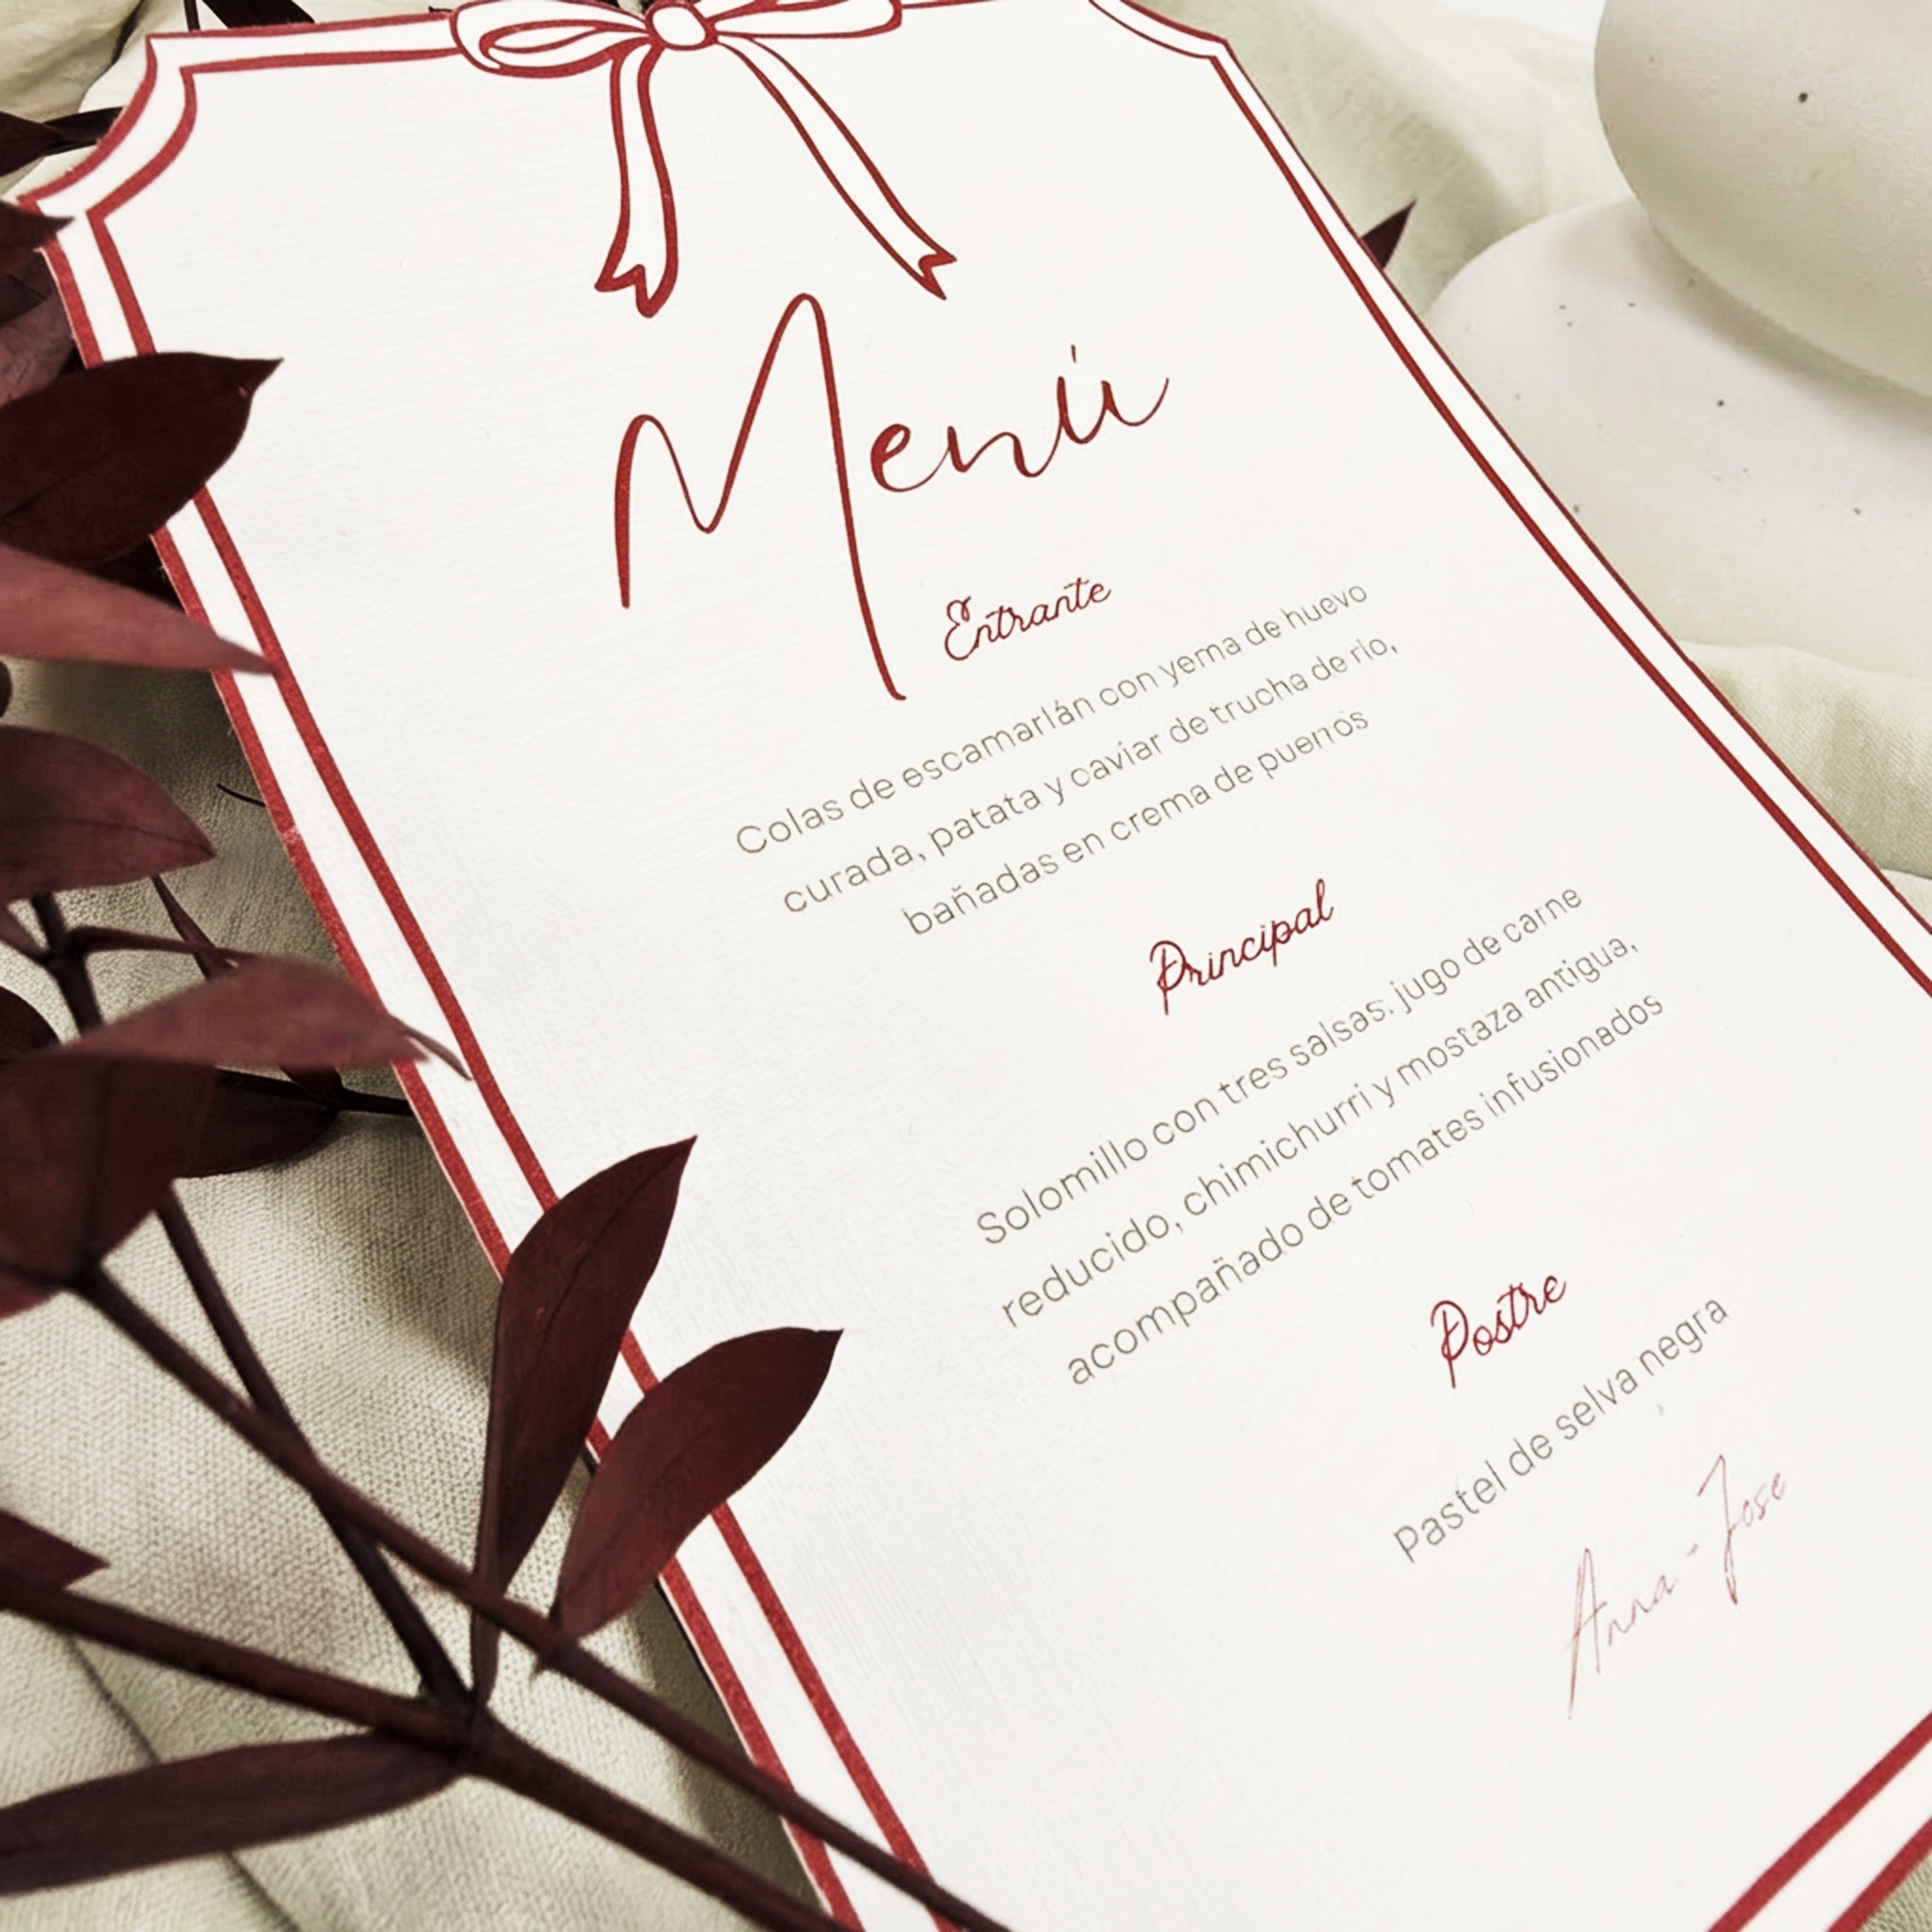 Menú
Entrante
Colas de escamarlán con yema de huevo
curada, patata y caviar de trucha de río,
bañadas en crema de puerros
Principal
Solomillo con tres salsas: jugo de carne
reducido, chimichurri y mostaza antigua,
acompañado de tomates infusionados
Postre
Pastel de selva negra
Anna - Jose